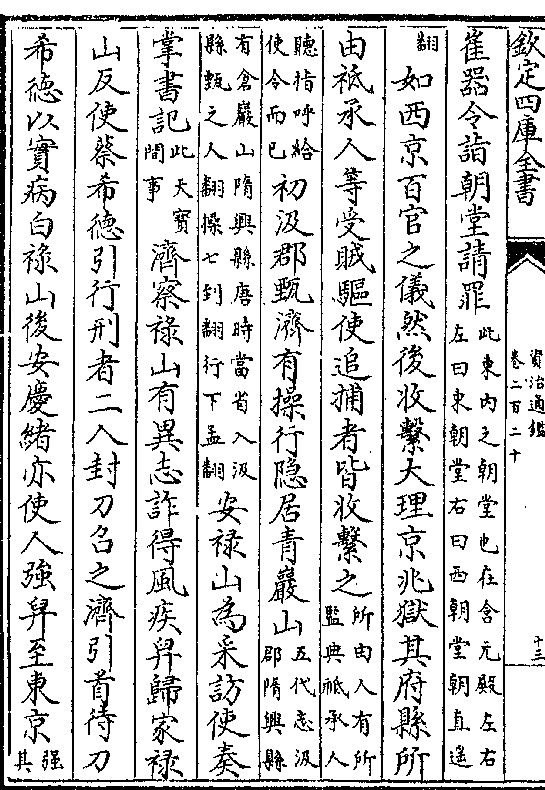 欽定四庫全書
資治通鑑
卷二百二十
十三
崔器令詣朝堂請罪此東内之朝堂也在含元殿左右左曰東朝堂右曰西朝堂朝直遥
翻如西京百官之儀然後收繫大理京兆獄其府縣所
由祗承人等受賊驅使追捕者皆收繫之所由人有所監典祗承人
聽指呼給使令而已初汲郡甄濟有操行隐居青巖山五代志汲郡隋興縣
有倉巖山隋興縣唐時當省入汲縣甄之人翻操七到翻行下孟翻安禄山為采訪使奏
掌書記此天寶間事濟察禄山有異志詐得風疾舁歸家禄
山反使蔡希德引行刑者二人封刀召之濟引首待刀
希德以實病白禄山後安慶緒亦使人強舁至東京強其